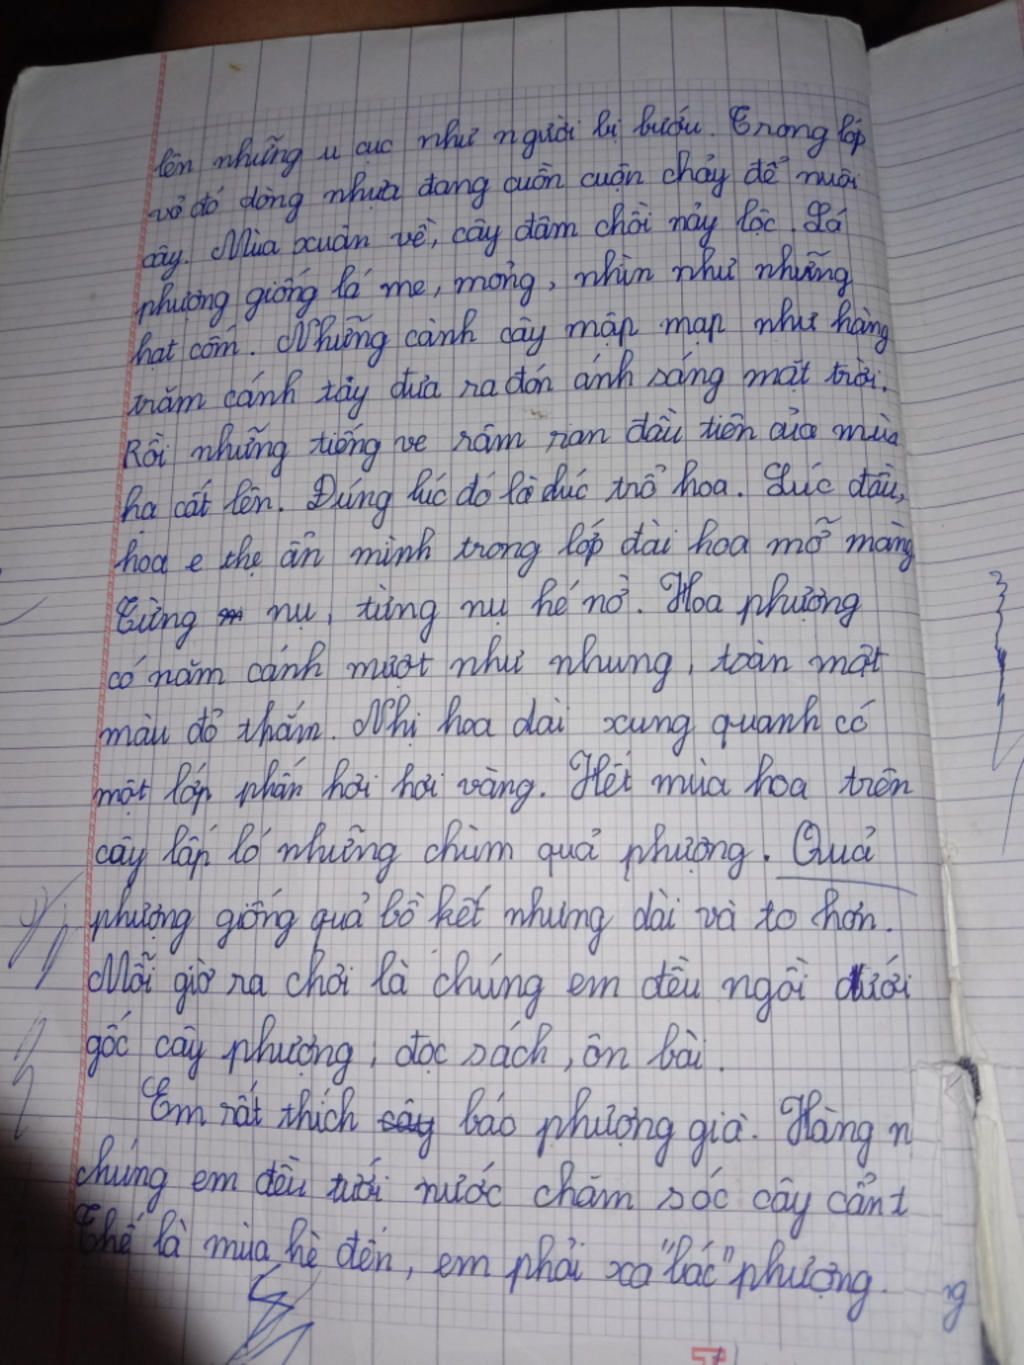 lên những u cục như người bị bướu. Trong lớp
vỏ đó dòng nhựa đang cuồn cuộn chảy để nuôi
cây. Mùa xuân về, cây đâm chồi nảy lộc. Lá
phượng giống lá me, mỏng, nhìn như những
hạt cốm. Những cành cây mập mạp như hàng
trăm cánh tay đưa ra đón ánh sáng mặt trời.
Rồi những tiếng ve râm ran đầu tiên của mùa
hạ cất lên. Đúng lúc đó là lúc trổ hoa. Lúc đầu,
hoa e thẹ ẩn mình trong lớp đài hoa mỡ màng
Từng nụ, từng nụ hé nở. Hoa phượng
có năm cánh mượt như nhung, toàn một
màu đỏ thắm. Nhị hoa dài xung quanh có
một lớp phấn hơi hơi vàng. Hết mùa hoa trên
cây lấp ló những chùm quả phượng. Quả
phượng giống quả bồ kết nhưng dài và to hơn.
Mỗi giờ ra chơi là chúng em đều ngồi dưới
gốc cây phượng, đọc sách, ôn bài.
Em rất thích cây báo phượng già. Hàng n
chúng em đều tưới nước chăm sóc cây cẩn t
Thế là mùa hè đến, em phải xa "bác" phượng.
ng